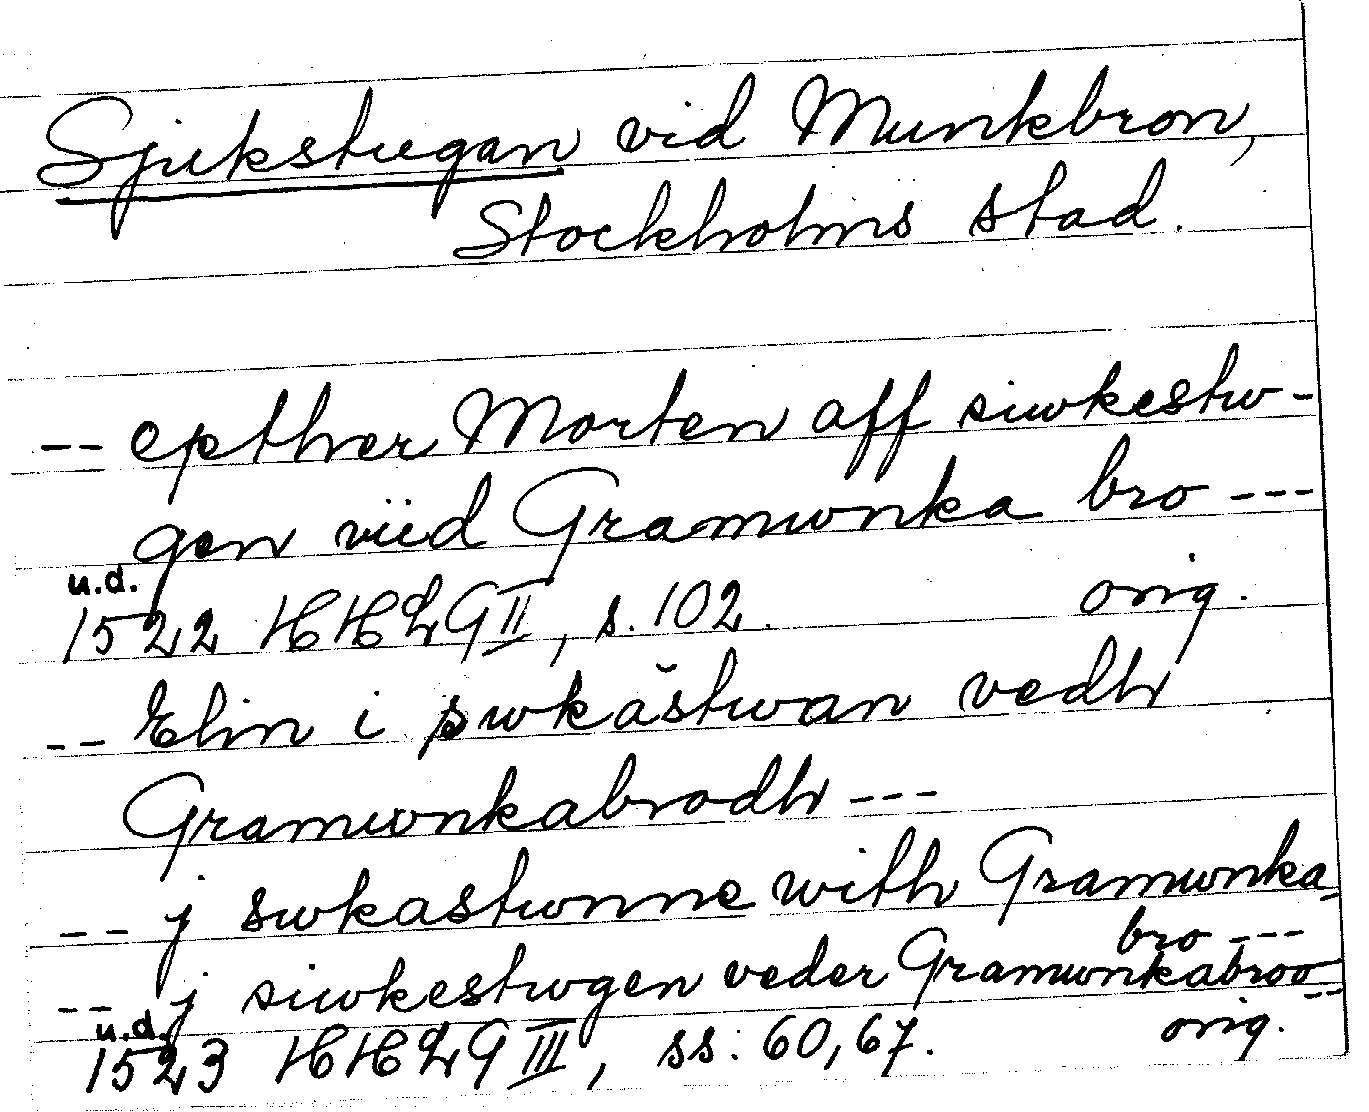 Sjukstugan vid Munkbron,
Stockholms stad.
-- epther Morten aff siwkestw-
gen viid Gramwnka bro ---
u.d.
1522 HHLG II, s. 102. orig.
-- Elin i swkästwan vedh
Gramwnkabrodh ---
-- j swkastwnne with Gramwnka
bro ---
-- j siwkestwgen veder Gramwnkabroo --
u.d.
1523 HHLG III, ss. 60, 67. orig.